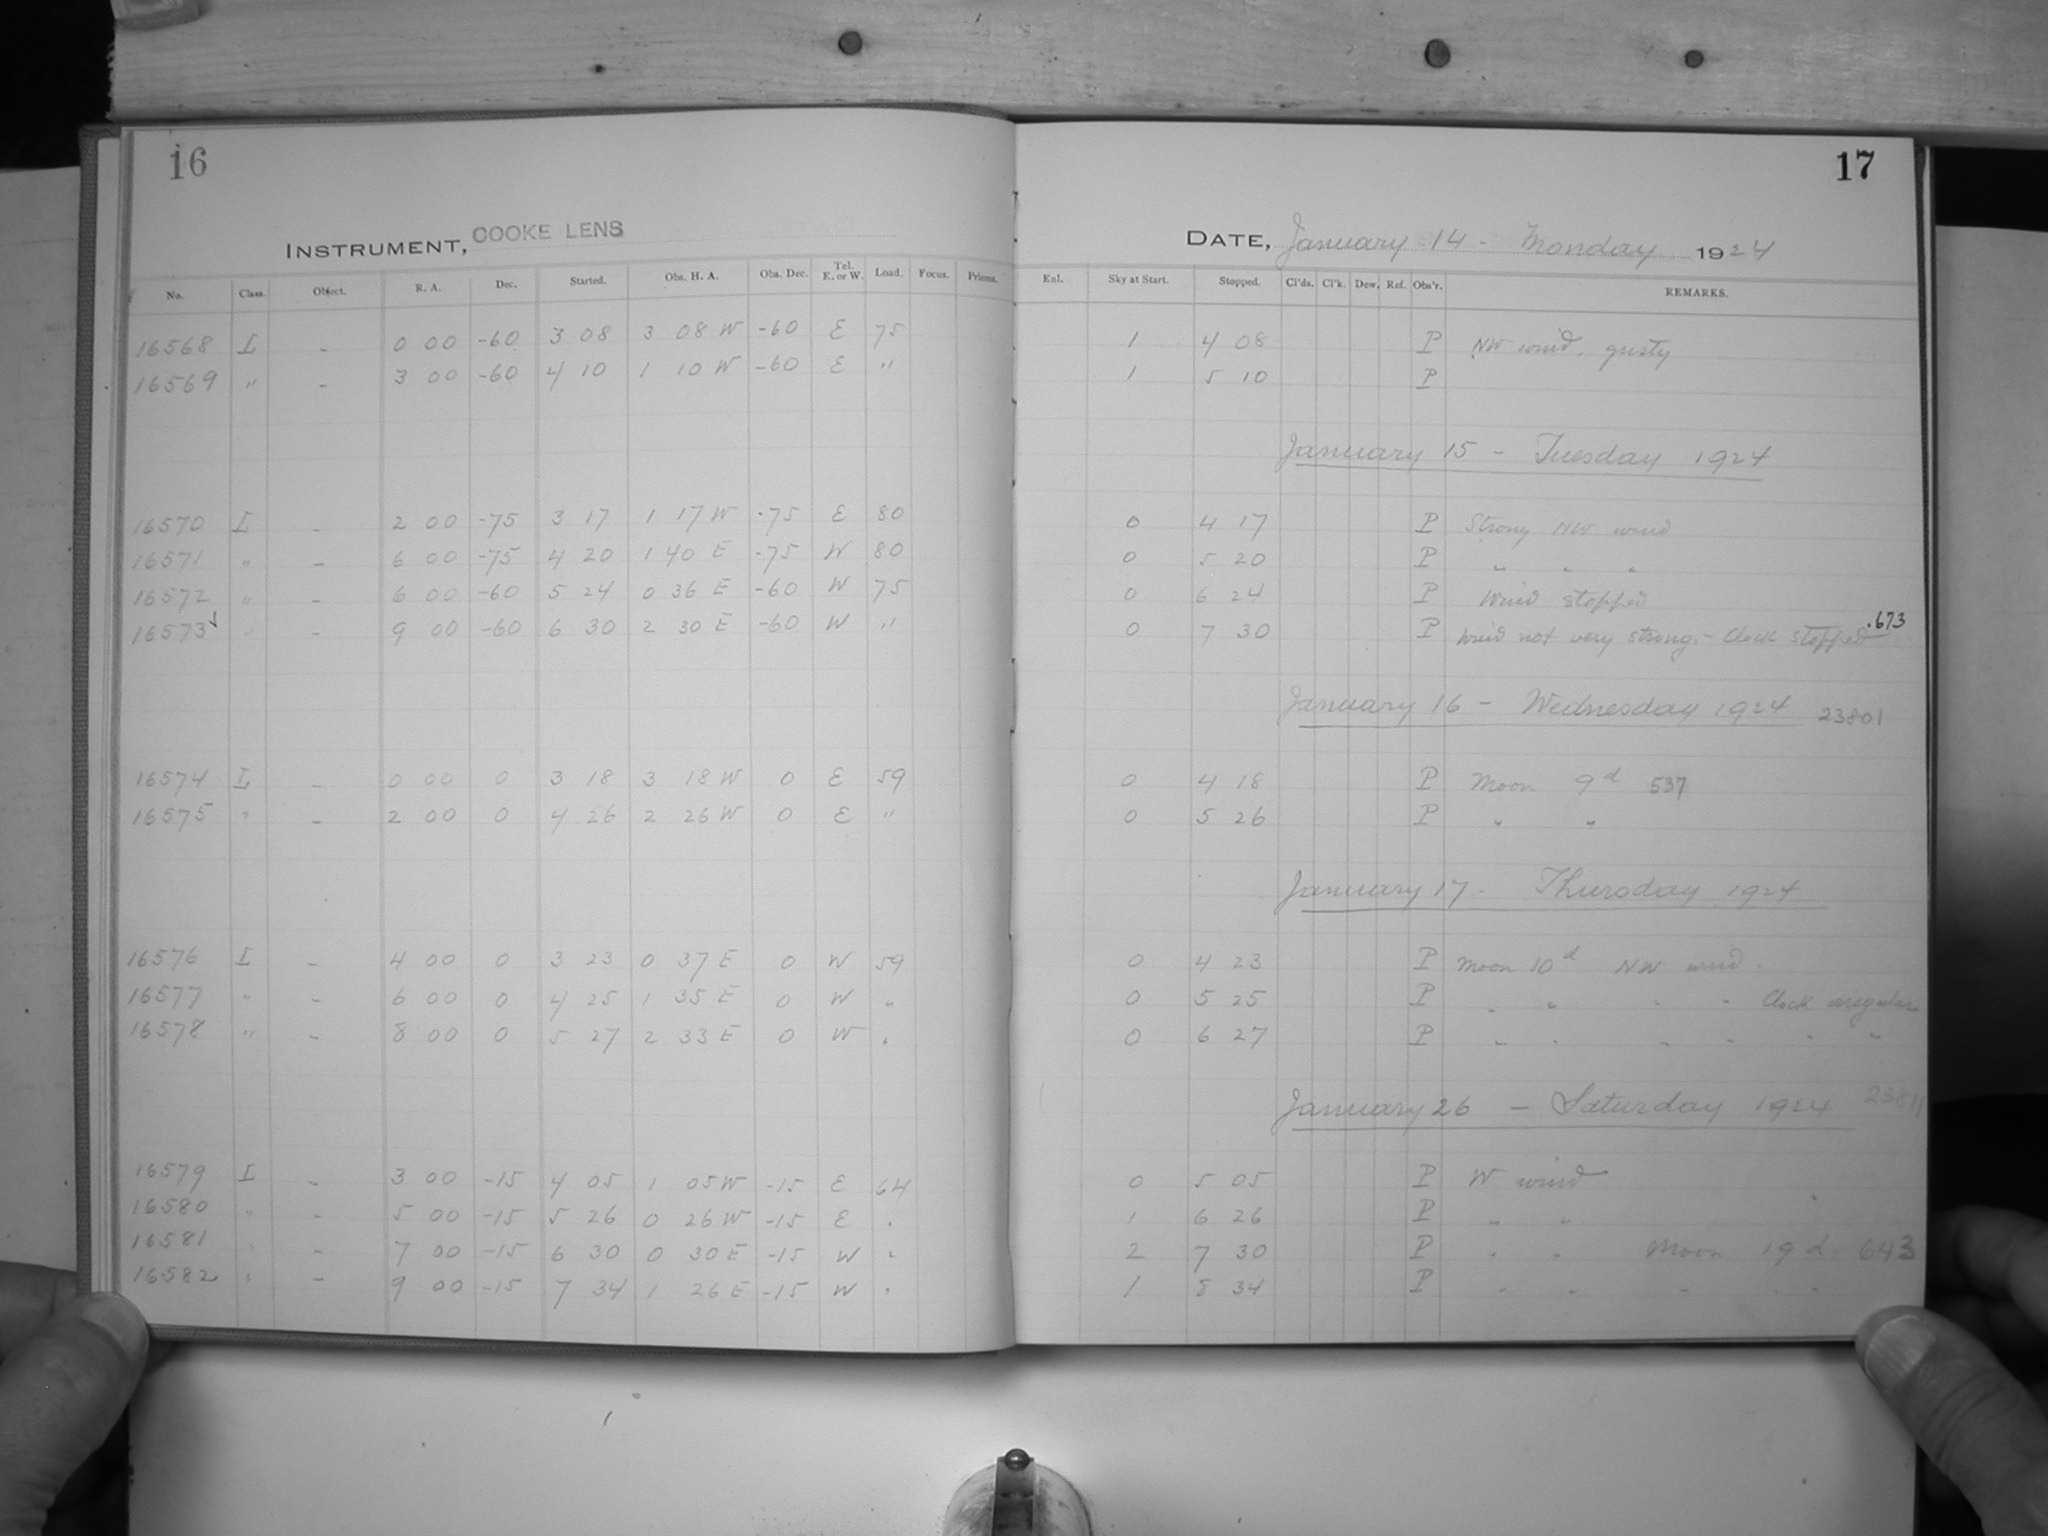 16
INSTRUMENT, COOKE LENS
No. Class. Object. R. A. Dec. Started. Obs. H. A. Obs. Dec. Tel. E. or W. Load. Focus. Prisms.
16568 I - 0 00 -60 3 08 3 08 W -60 E 75
16569 " - 3 00 -60 4 10 1 10 W -60 E "
16570 I - 2 00 -75 3 17 1 17 W -75 E 80
16571 " - 6 00 -75 4 20 1 40 E -75 W 80
16572 " - 6 00 -60 5 24 0 36 E -60 W 75
16573 " - 9 00 -60 6 30 2 30 E -60 W "
16574 I - 0 00 0 3 18 3 18 W 0 E 59
16575 " - 2 00 0 4 26 2 26 W 0 E "
16576 I - 4 00 0 3 23 0 37 E 0 W 59
16577 " - 6 00 0 4 25 1 35 E 0 W "
16578 " - 8 00 0 5 27 2 33 E 0 W "
16579 I - 3 00 -15 4 05 1 05 W -15 E 64
16580 " - 5 00 -15 5 26 0 26 W -15 E "
16581 " - 7 00 -15 6 30 0 30 E -15 W "
16582 " - 9 00 -15 7 34 1 26 E -15 W "
17
DATE, January 14 - Monday 1924
Enl. Sky at Start. Stopped. Cl'ds. Cl'k. Dew. Ref. Obs'r. REMARKS.
1 4 08 P NW wind. gusty
1 5 10 P
January 15 - Tuesday 1924
0 4 17 P Strong NW wind
0 5 20 P " " "
0 6 24 P Wind stopped
0 7 30 P Wind not very strong. - Clock stopped .673
January 16 - Wednesday 1924 23801
0 4 18 P Moon 9d 537
0 5 26 P " "
January 17 - Thursday 1924
0 4 23 P Moon 10d NW wind.
0 5 25 P " " " " Clock irregular
0 6 27 P " " " " " "
January 26 - Saturday 1924
0 5 05 P W wind
1 6 26 P " "
2 7 30 P " " Moon 19d 643
1 8 34 P " " " " "